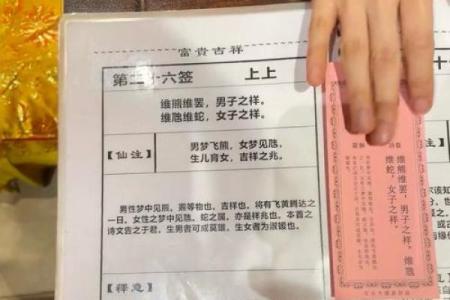 富貴吉祥
第二十六签 上上
维熊维罴，男子之祥。
维虺维蛇，女子之祥。
【仙注】
男梦飞熊，女梦见虺。
生儿育女，吉祥之兆。
男性梦中见熊，罴等物也，吉祥也，将有飞黄腾达之
一日，女性之梦中见虺，蛇之属，亦是祥兆也，本首之
诗文告之于君，生男者可成莫雄，生女者为淑媛也。
【释意】
维熊维罴，男子之祥。维虺
维蛇，女子之祥。